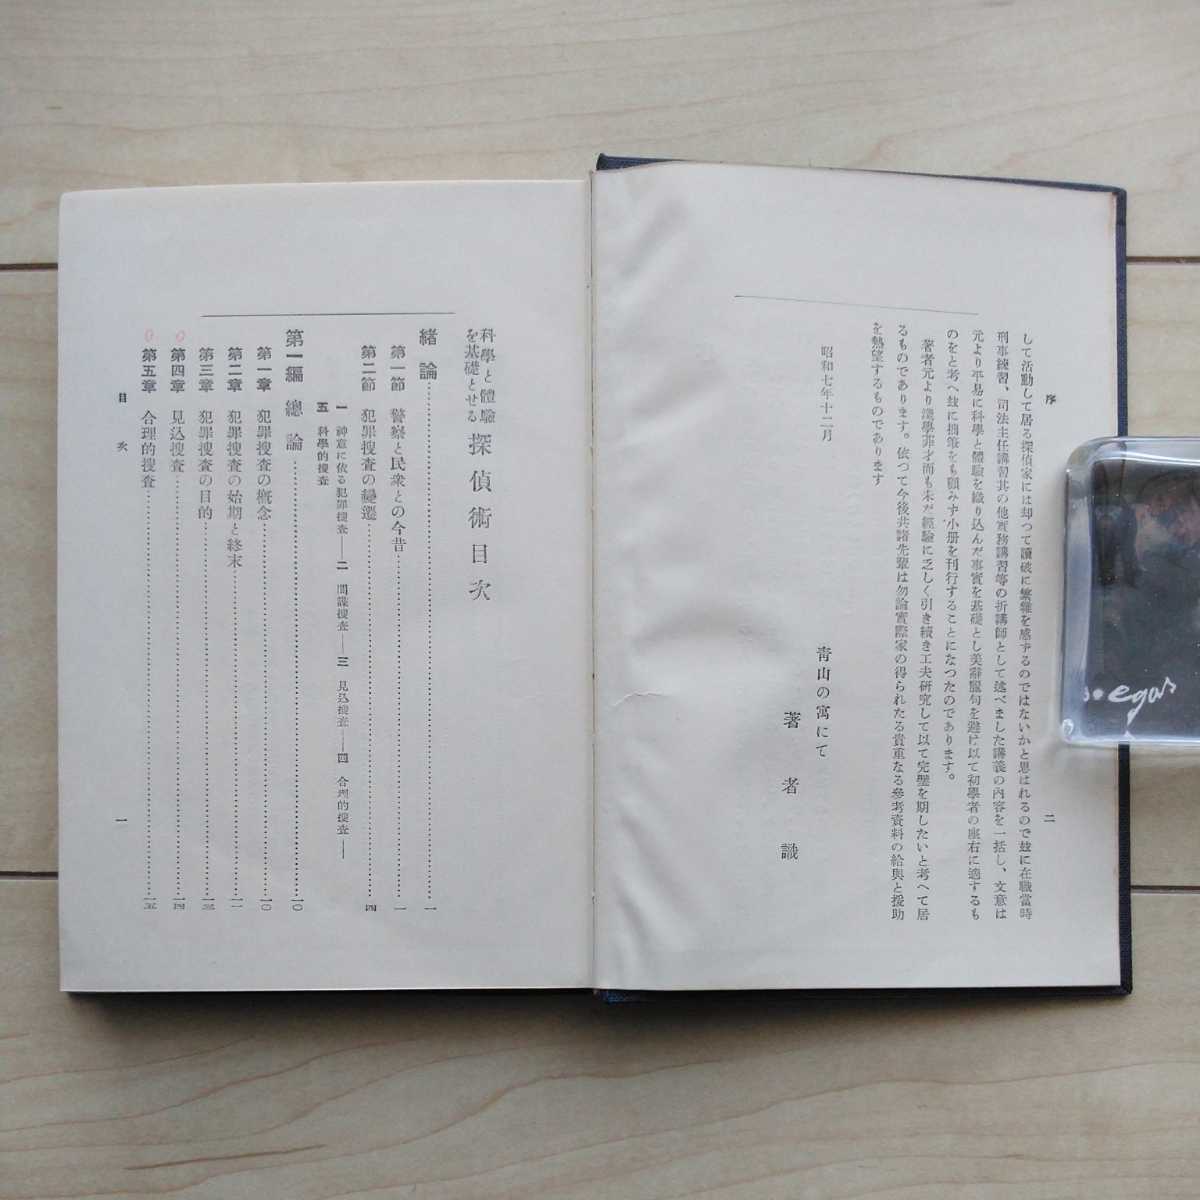 序
二
して活動して居る探偵家には却つて讀破に繁雜を感ずるのではないかと思はれるので玆に在職當時
刑事練習、司法主任講習其の他實務講習等の折講師として述べました講義の內容を一括し、文意は
元より平易に科學と體驗を織り込んだ事實を基礎とし美辭麗句を避け以て初學者の座右に適するも
のをと考へ玆に拙筆をも顧みず小册を刊行することになつたのであります。
著者元より淺學菲才而も未だ經驗に乏しく引き續き工夫硏究して以て完璧を期したいと考へて居
るものであります。依つて今後共諸先輩は勿論實際家の得られたる貴重なる參考資料の給與と援助
を熱望するものであります
昭和七年十二月
靑山の寓にて
著者識
科學と體驗を基礎とせる 探偵術目次
緖論……一
第一節 警察と民衆との今昔……一
第二節 犯罪搜査の變遷……四
一 神意に依る犯罪搜査——二 間諜搜査——三 見込搜査——四 合理的搜査——
五 科學的搜査
第一編 總論……一〇
第一章 犯罪搜査の槪念……一〇
第二章 犯罪搜査の始期と終末……一一
第三章 犯罪搜査の目的……一三
第四章 見込搜査……一四
第五章 合理的搜査……一五
目次
一
egas